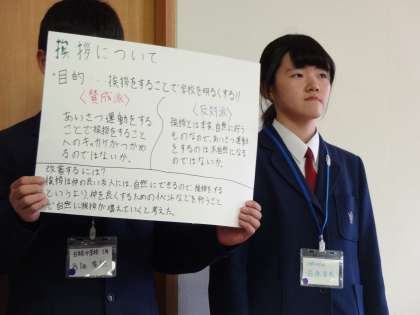 挨拶について
・目的…挨拶をすることで学校を明るくする!!
〈賛成派〉
あいさつ運動をする
ことで挨拶をすること
へのキッカケがつかめ
るのではないか。
〈反対派〉
挨拶とは本来、自然に行う
ものなので、あいさつ運動
をするのは不自然になる
のではないか。
改善するには?
挨拶は仲の良い友人には、自然にできるので、挨拶をする
というより、仲を良くするためのイベントなどを行うこと
で自然に挨拶が増えていくと考えた。